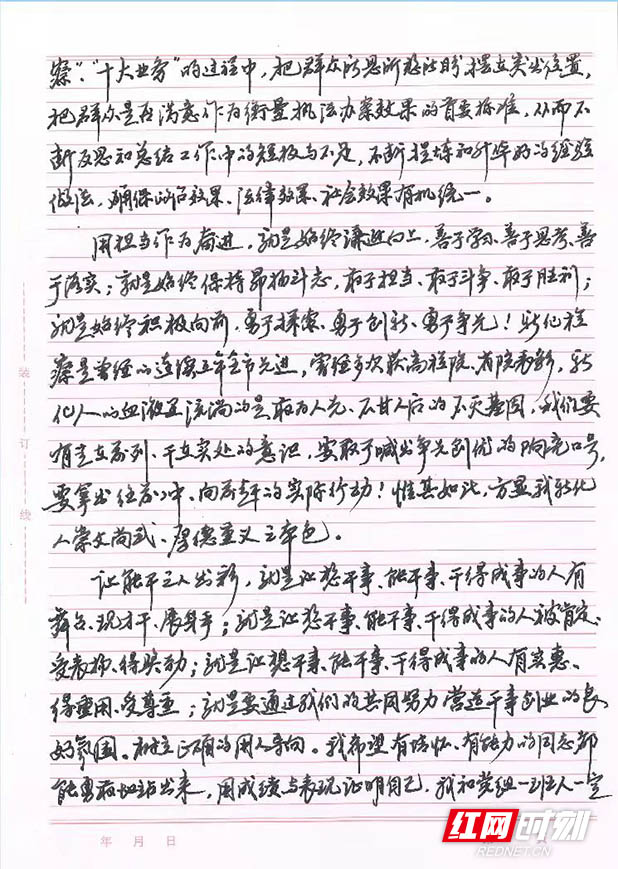 察”、“十大业务”的过程中,把群众所思所想所盼摆在突出位置,
把群众是否满意作为衡量执法办案效果的首要标准,从而不
断反思和总结工作中的短板与不足,不断提炼和升华好的经验
做法,确保政治效果、法律效果、社会效果有机统一。
用担当作为奋进,就是始终谦逊向上,善于学习、善于思考、善
于落实;就是始终保持昂扬斗志,敢于担当、敢于斗争、敢于胜利;
就是始终积极向前,勇于探索、勇于创新、勇于争先!新化检
察是曾经的连续五年全市先进,曾经多次获高检院、省院表彰,新
化人的血液里流淌的是敢为人先、不甘人后的不灭基因,我们要
有走在前列、干在实处的意识,要敢于喊出争先创优的响亮口号,
要拿出往前冲、向前走的实际行动!惟其如此,方显我新化
人崇文尚武、厚德重义之本色。
让能干之人出彩,就是让想干事、能干事、干得成事的人有
舞台、现才干、展身手;就是让想干事、能干事、干得成事的人被肯定、
受表扬、得奖励;就是让想干事、能干事、干得成事的人有实惠、
得重用、受尊重;就是要通过我们的共同努力营造干事创业的良
好氛围。树立正确的用人导向。我希望有情怀、有能力的同志都
能勇敢地站出来,用成绩与表现证明自己,我和党组一班人一定
装
订
线
年 月 日
红网时刻
REDNET.CN